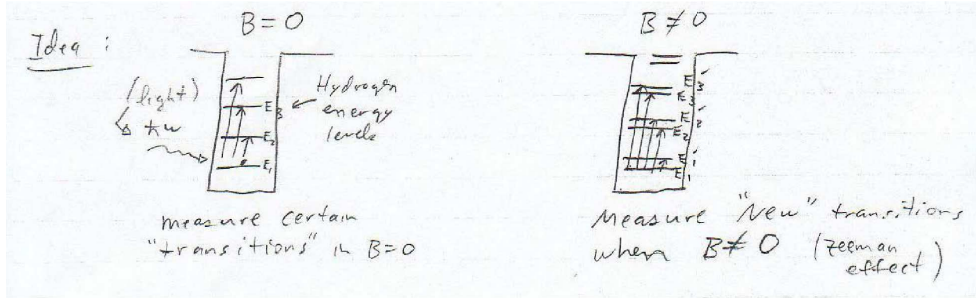 Idea :
B = 0
(light)
ħω
E3
E2
E1
Hydrogen
energy
levels
measure certain
"transitions" in B=0
B ≠ 0
E3'
E3
E2'
E2
E1'
E1
Measure "New" transitions
when B ≠ 0 (Zeeman
effect)